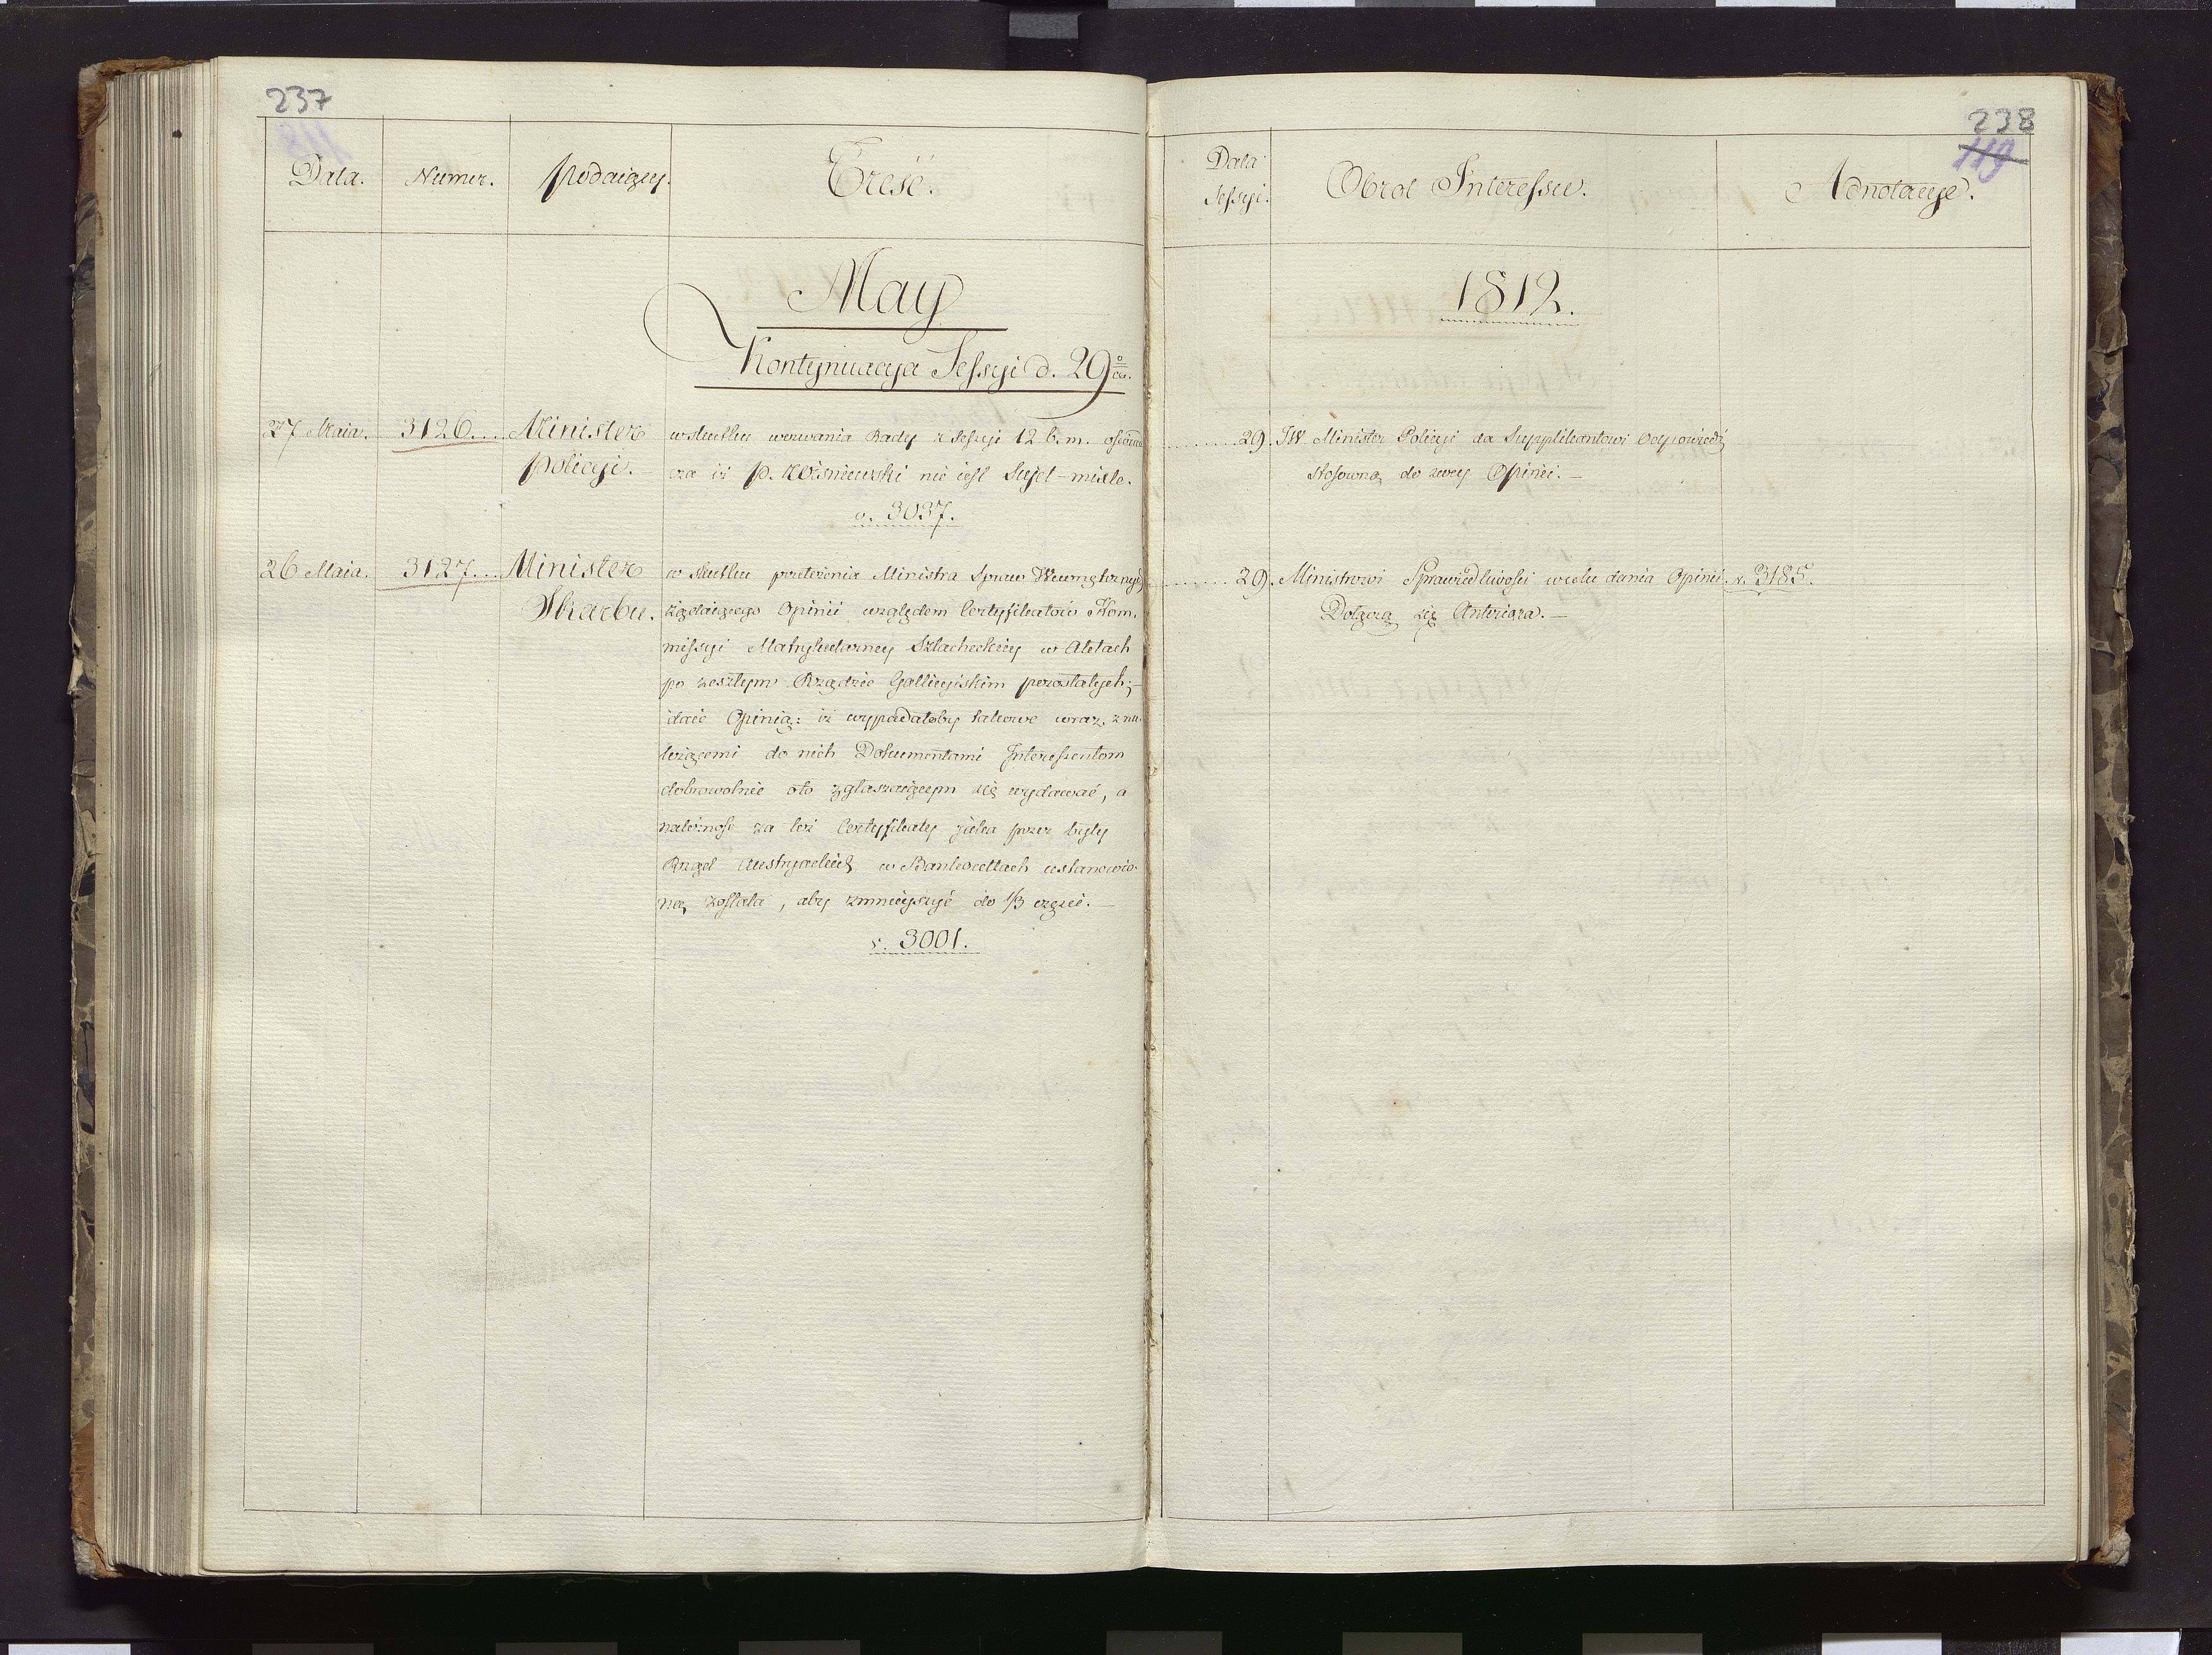 237
Data.
Numer.
Podaiący.
Treść.
May
Kontynuacya Sessyi d. 29º ca.
27 Maia. 3126.... Minister
Policyi.
w skutku wezwania Rady z Sessyi 12 b. m. oświad
cza iż P. Wiśniewski nie iest Sujet-mixte.
v. 3037.
26 Maia. 3127... Minister
Skarbu.
w skutku przełożenia Ministra Spraw Wewnętrznych
żądaiącego Opinii względem Certyfikatów Kom-
missyi Matrykularney Szlacheckiey w Aktach
po zeszłym Rządzie Gallicyiskim pozostałych;-
daie Opinią: iż wypadałoby takowe wraz z na-
leżącemi do nich Dokumentami Interessentom
dobrowolnie oto zgłaszaiącym się wydawać, a
należność za też Certyfikaty jaka przez były
Rząd Austryacki w Bankocetlach ustanowio-
ną została, aby zmnieyszyć do 1/3 części.—
v. 3001.
238
119
Data
Sessyi.
Obrot Interessu.
Adnotacye.
1812.
........29. JW. Minister Policyi da Supplikantowi Odpowiedź
stosowną do swey Opinii.—
........29. Ministrowi Sprawiedliwości w celu dania Opinii. v. 3185.
Dołączą się Anteriora.—